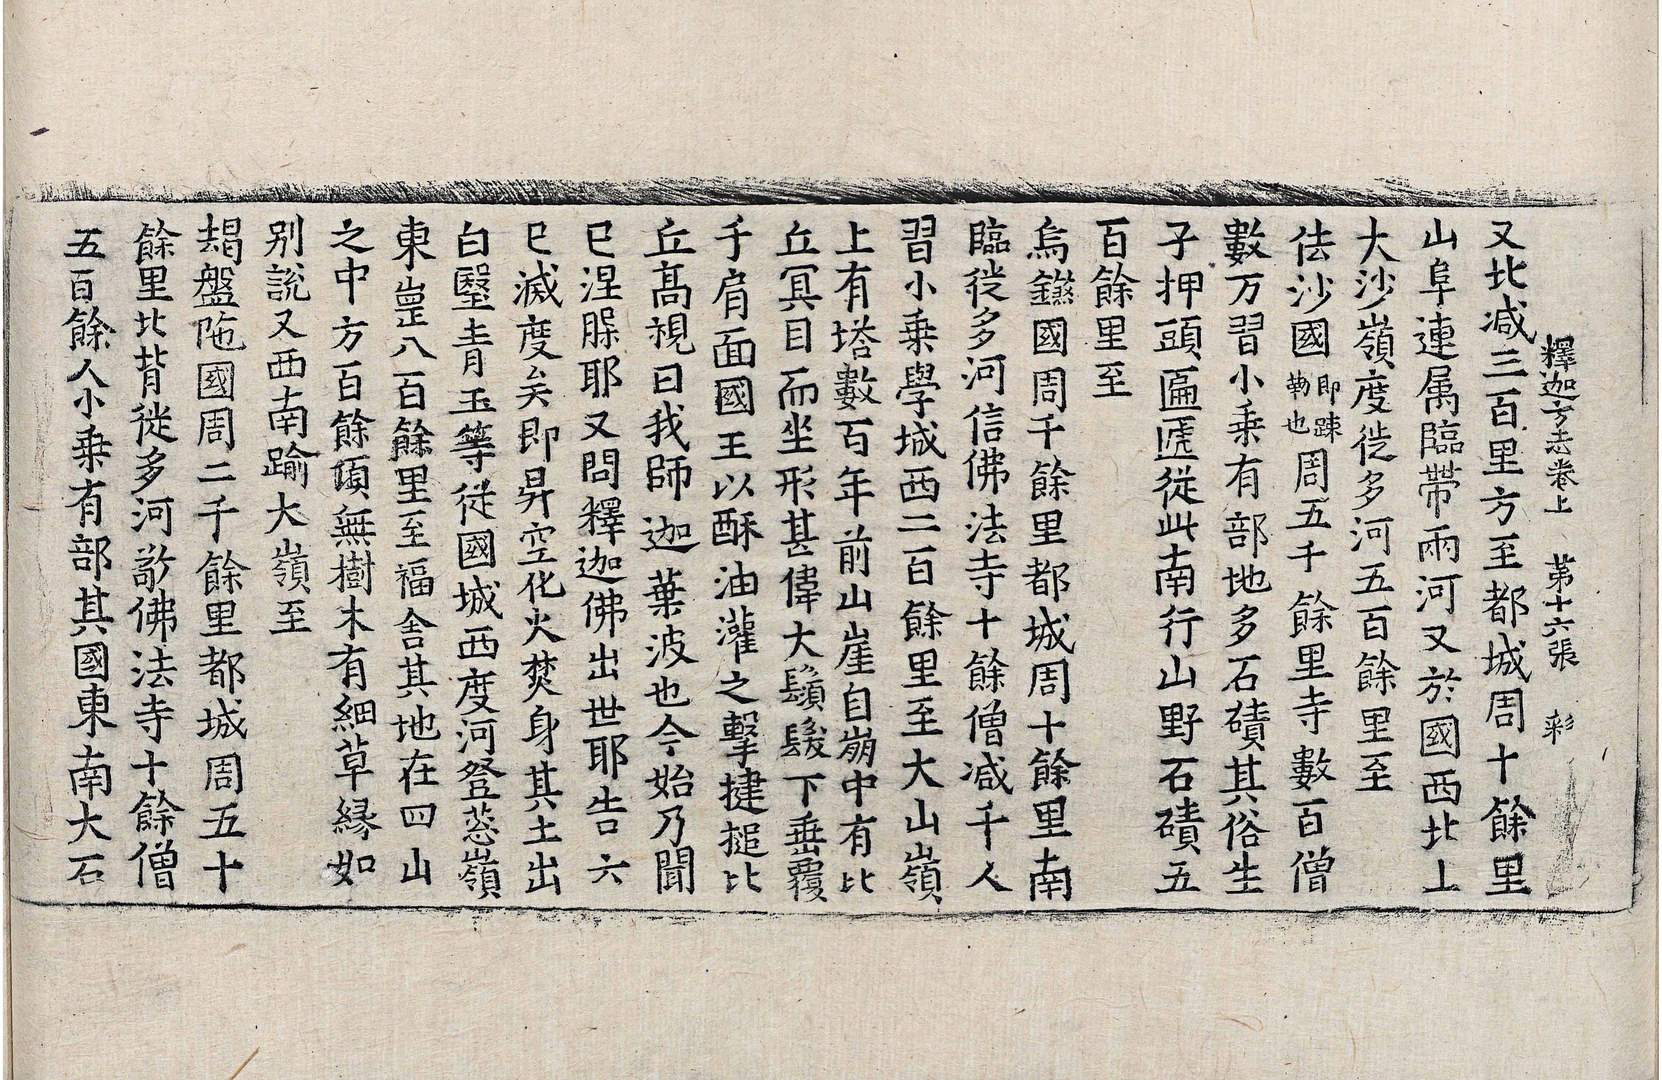 釋迦方志卷上　第十六張　彩
又北减三百里方至都城周十餘里
山阜連属臨帶兩河又於國西北上
大沙嶺度徙多河五百餘里至
佉沙國即踈勒也周五千餘里寺數百僧
數万習小乗有部地多石磧其俗生
子押頭匾㔸從此南行山野石磧五
百餘里至
烏鎩國周千餘里都城周十餘里南
臨徙多河信佛法寺十餘僧减千人
習小乗學城西二百餘里至大山嶺
上有塔數百年前山崖自崩中有比
丘冥目而坐形甚偉大鬚髮下垂覆
于肩面國王以酥油灌之擊揵搥比
丘髙視曰我師迦葉波也今始乃聞
已涅槃耶又問釋迦佛出世耶告六
已滅度矣即昇空化火焚身其土出
白瑿青玉等從國城西度河登葱嶺
東崗八百餘里至福舍其地在四山
之中方百餘頃無樹木有細草緣如
别說又西南踰大嶺至
朅盤陁國周二千餘里都城周五十
餘里北背徙多河敬佛法寺十餘僧
五百餘人小乗有部其國東南大石